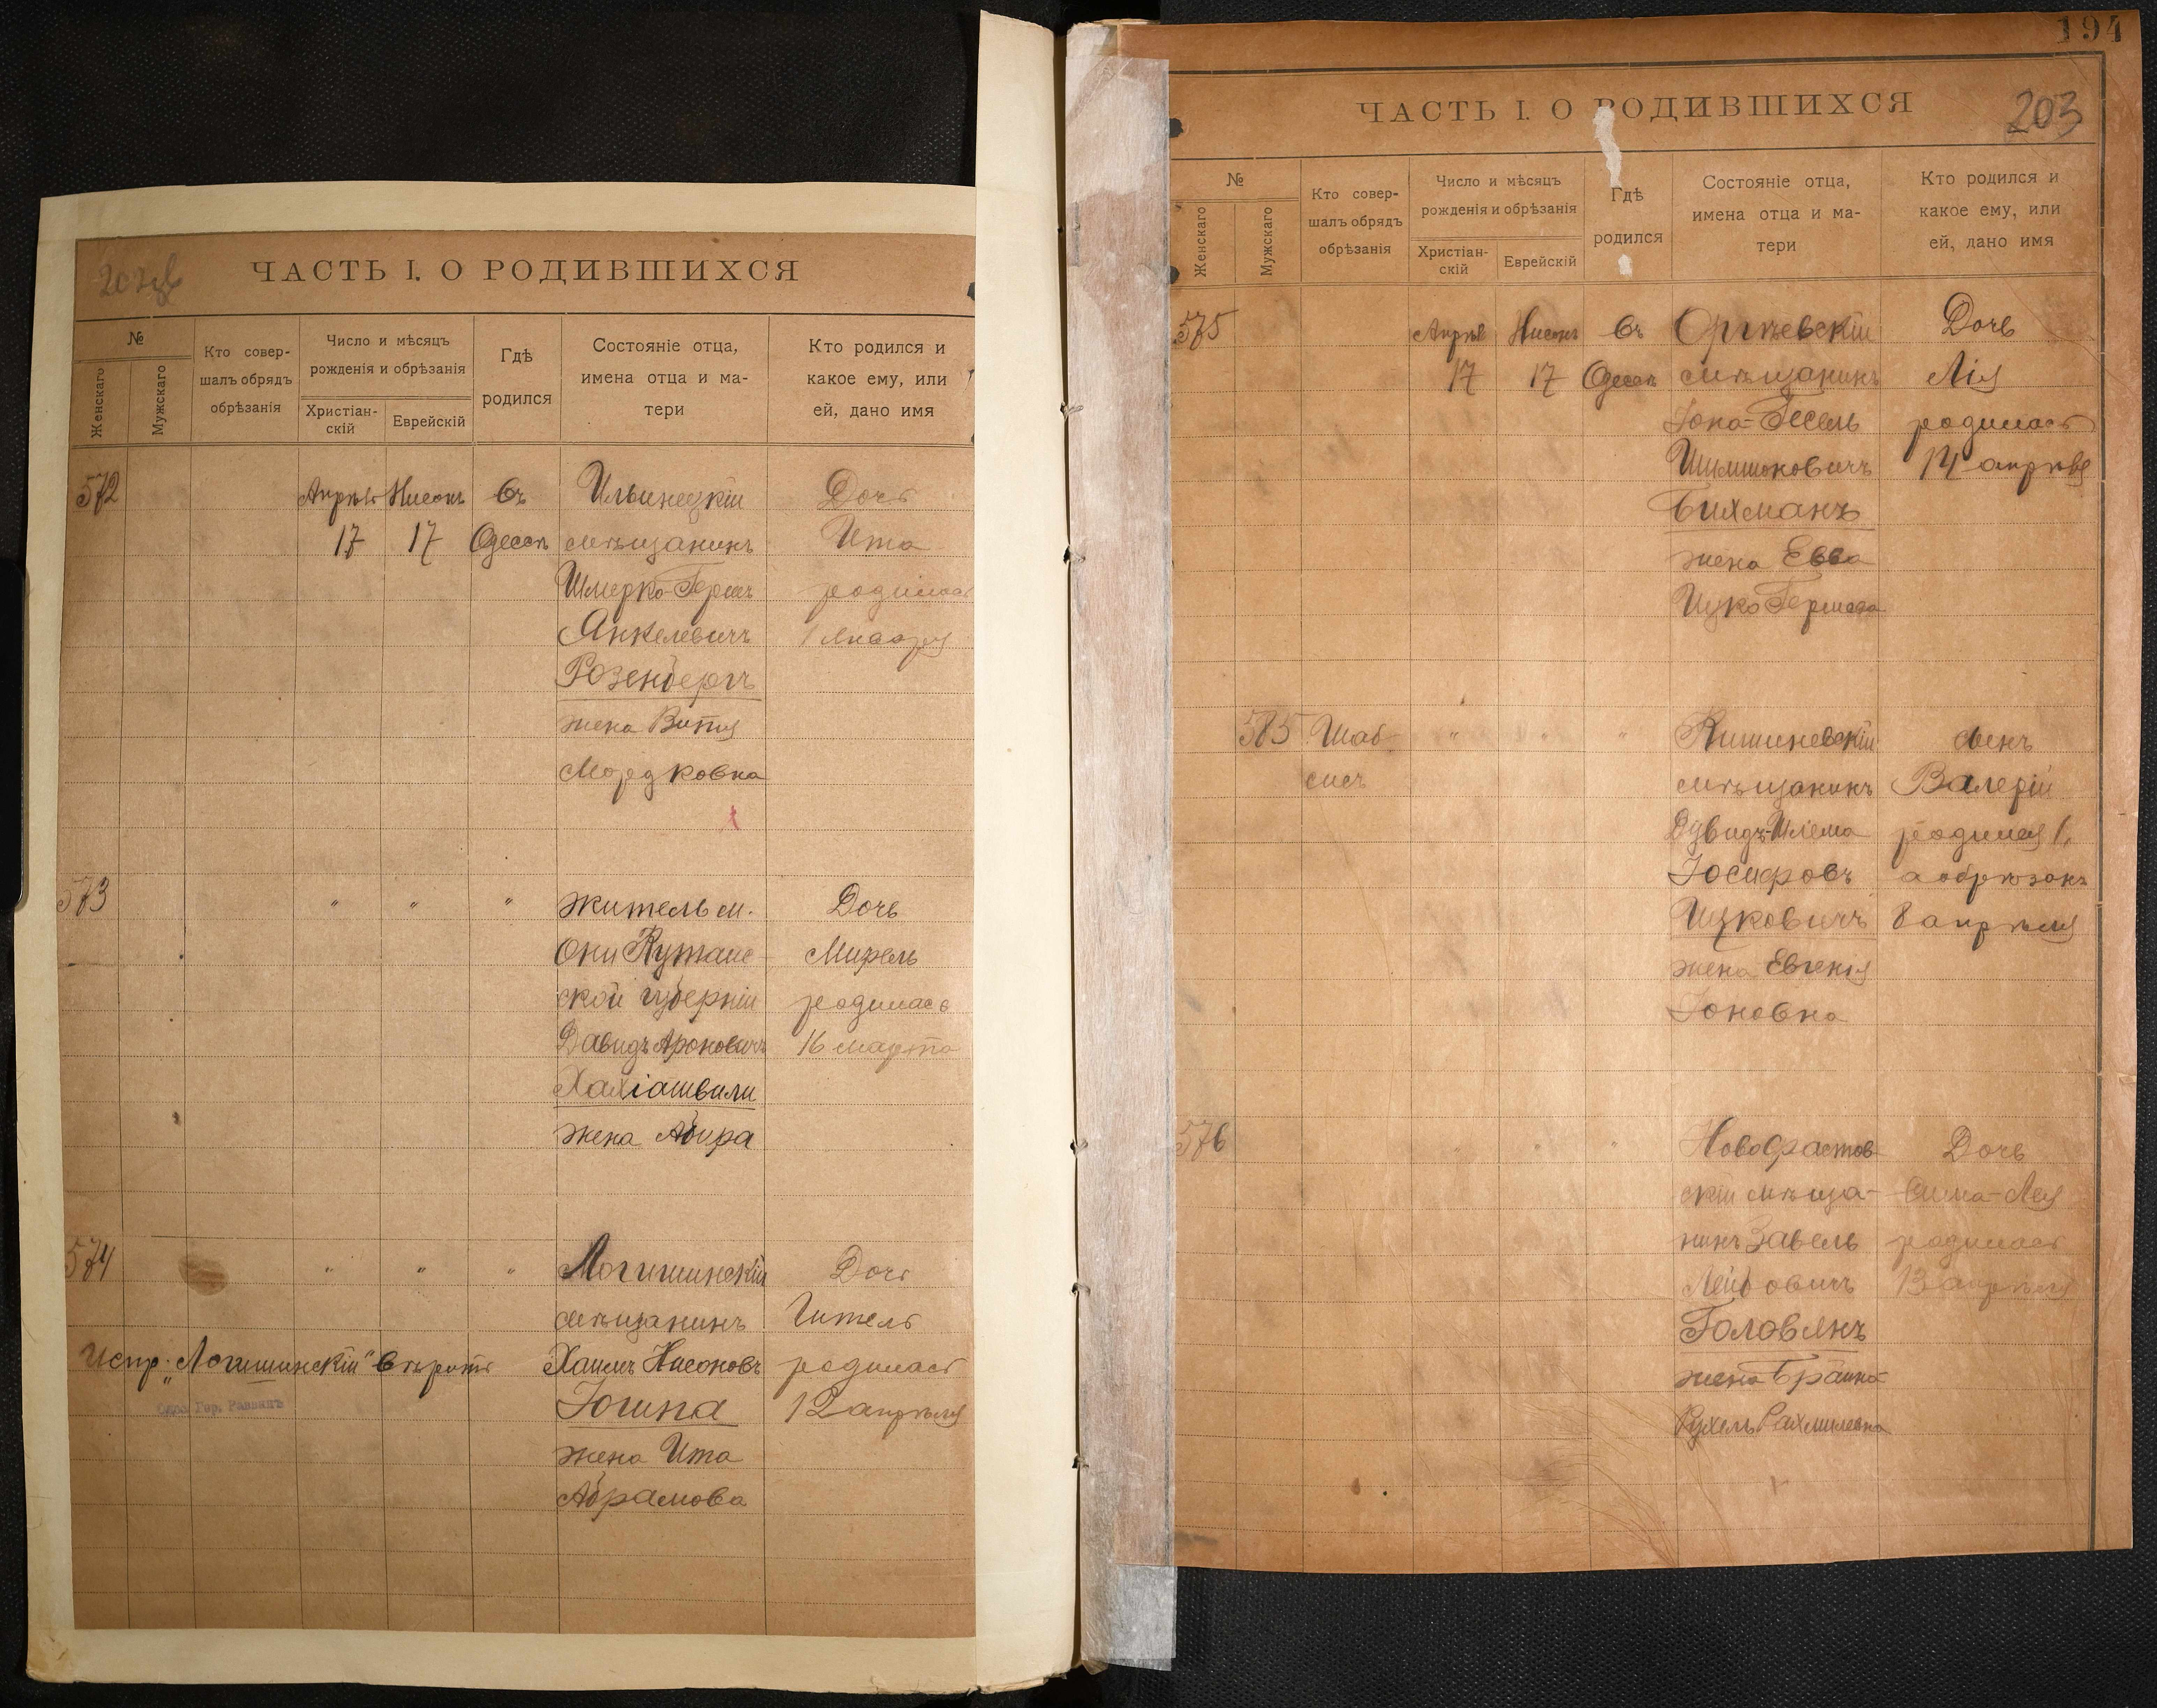 ЧАСТЬ I. О РОДИВШИХСЯ
№
Женскаго
Мужскаго
Кто совер-
шалъ обрядъ
обрѣзанія
Число и мѣсяцъ
рожденія и обрѣзанія
Христіан-
скій
Еврейскій
Гдѣ
родился
Состояніе отца,
имена отца и ма-
тери
Кто родился и
какое ему, или
ей, дано имя
572
Апрѣля
17
Нисонъ
17
Въ
Одессѣ
Ильинецкій
мѣщанинъ
Шмерко-Гершъ
Янкелевичъ
Розенбергъ
жена Витя
Мордковна
Дочь
Ита
родилась
1 Января
573
" " "
житель м.
Они Кутаис-
ской губерніи
Давидъ Ароновичъ
Хахіашвили
жена Абира
Дочь
Мирель
родилась
16 марта
574
" " "
Логишинскій
мѣщанинъ
Хаимъ Нисоновъ
Гогина
жена Ита
Абрамова
Дочь
Гитель
родилась
12 апрѣля
Испр. "Логишинскій" вѣрить
Одес. Гор. Раввинъ
194
ЧАСТЬ I. О РОДИВШИХСЯ
203
№
Женскаго
Мужскаго
Кто совер-
шалъ обрядъ
обрѣзанія
Число и мѣсяцъ
рожденія и обрѣзанія
Христіан-
скій
Еврейскій
Гдѣ
родился
Состояніе отца,
имена отца и ма-
тери
Кто родился и
какое ему, или
ей, дано имя
575
Апрѣля
17
Нисонъ
17
Въ
Одессѣ
Оргѣевскій
мѣщанинъ
Іона-Гесель
Шимшоновичъ
Бихманъ
жена Евва
Ицко Гершева
Дочь
Лія
родилась
14 апрѣля
585
Шаб-
сисъ
" " "
Кишиневскій
мѣщанинъ
Дувидъ-Шлема
Іосифовъ
Ицковичъ
жена Евгенія
Іоновна
Сынъ
Валерій
родился 1,
а обрѣзанъ
8 апрѣля
576
" " "
Новофастов-
скій мѣща-
нинъ Завель
Лейбовичъ
Головянъ
жена Браина
Рухель Рахмилевна
Дочь
Сима-Лея
родилась
13 апрѣля